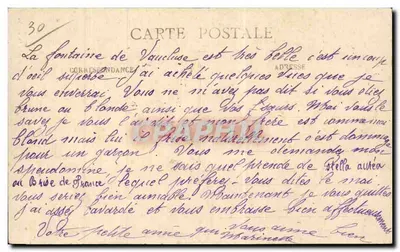 30
CARTE POSTALE
CORRESPONDANCE ADRESSE
La fontaine de Vaucluse est très belle c'est un coup
d'oeil superbe j'ai acheté quelques vues que je
vous enverrai Vous ne m'avez pas dit si vous étiez
brune ou blonde ainsi que vos Moi vous le
savez je vous l'ai dit et mon frère est comme moi
blond mais lui frise naturellement c'est dommage
pour un garçon Vous me demandez mon
speudonime, je ne sais quel prendre de Stella
ou de France lequel préférez-Vous dites le moi
vous seriez bien aimable Maintenant je vous quitte
j'ai assez bavardé et vous embrasse bien affectueusement
Votre petite amie qui Vous aime bien